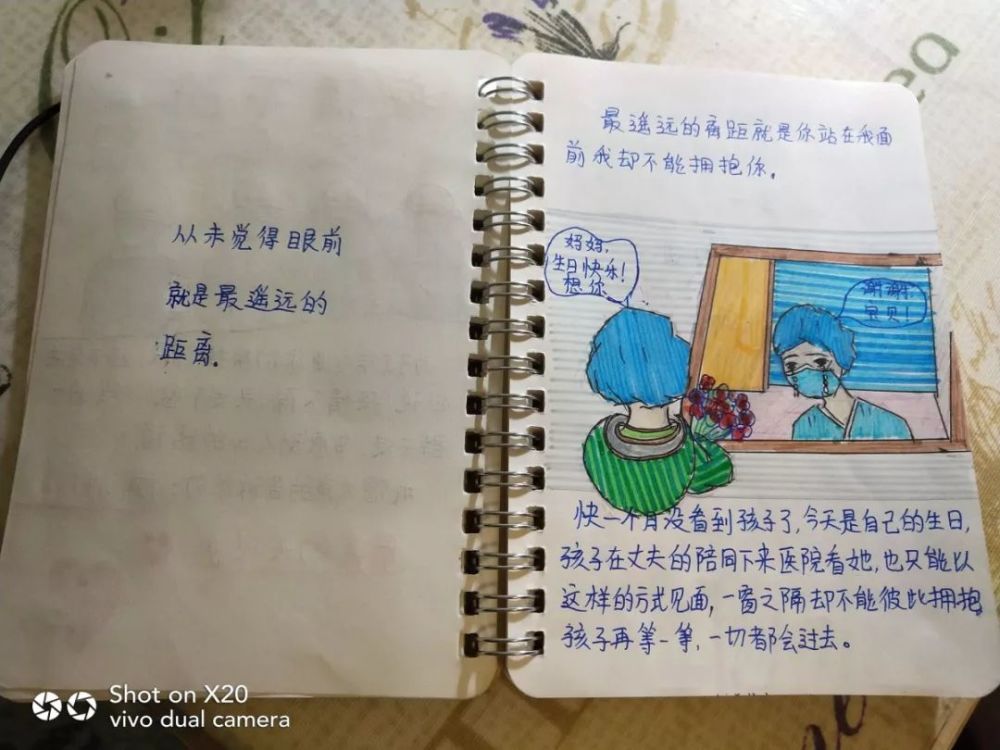 从未觉得眼前
就是最遥远的
距离.
最遥远的离距就是你站在我面
前我却不能拥抱你。
妈妈,
生日快乐!
想你
谢谢,
宝贝!
快一个月没看到孩子了,今天是自己的生日,
孩子在丈夫的陪同下来医院看她,也只能以
这样的方式见面,一窗之隔却不能彼此拥抱
孩子再等一等,一切都会过去。
Shot on X20
vivo dual camera